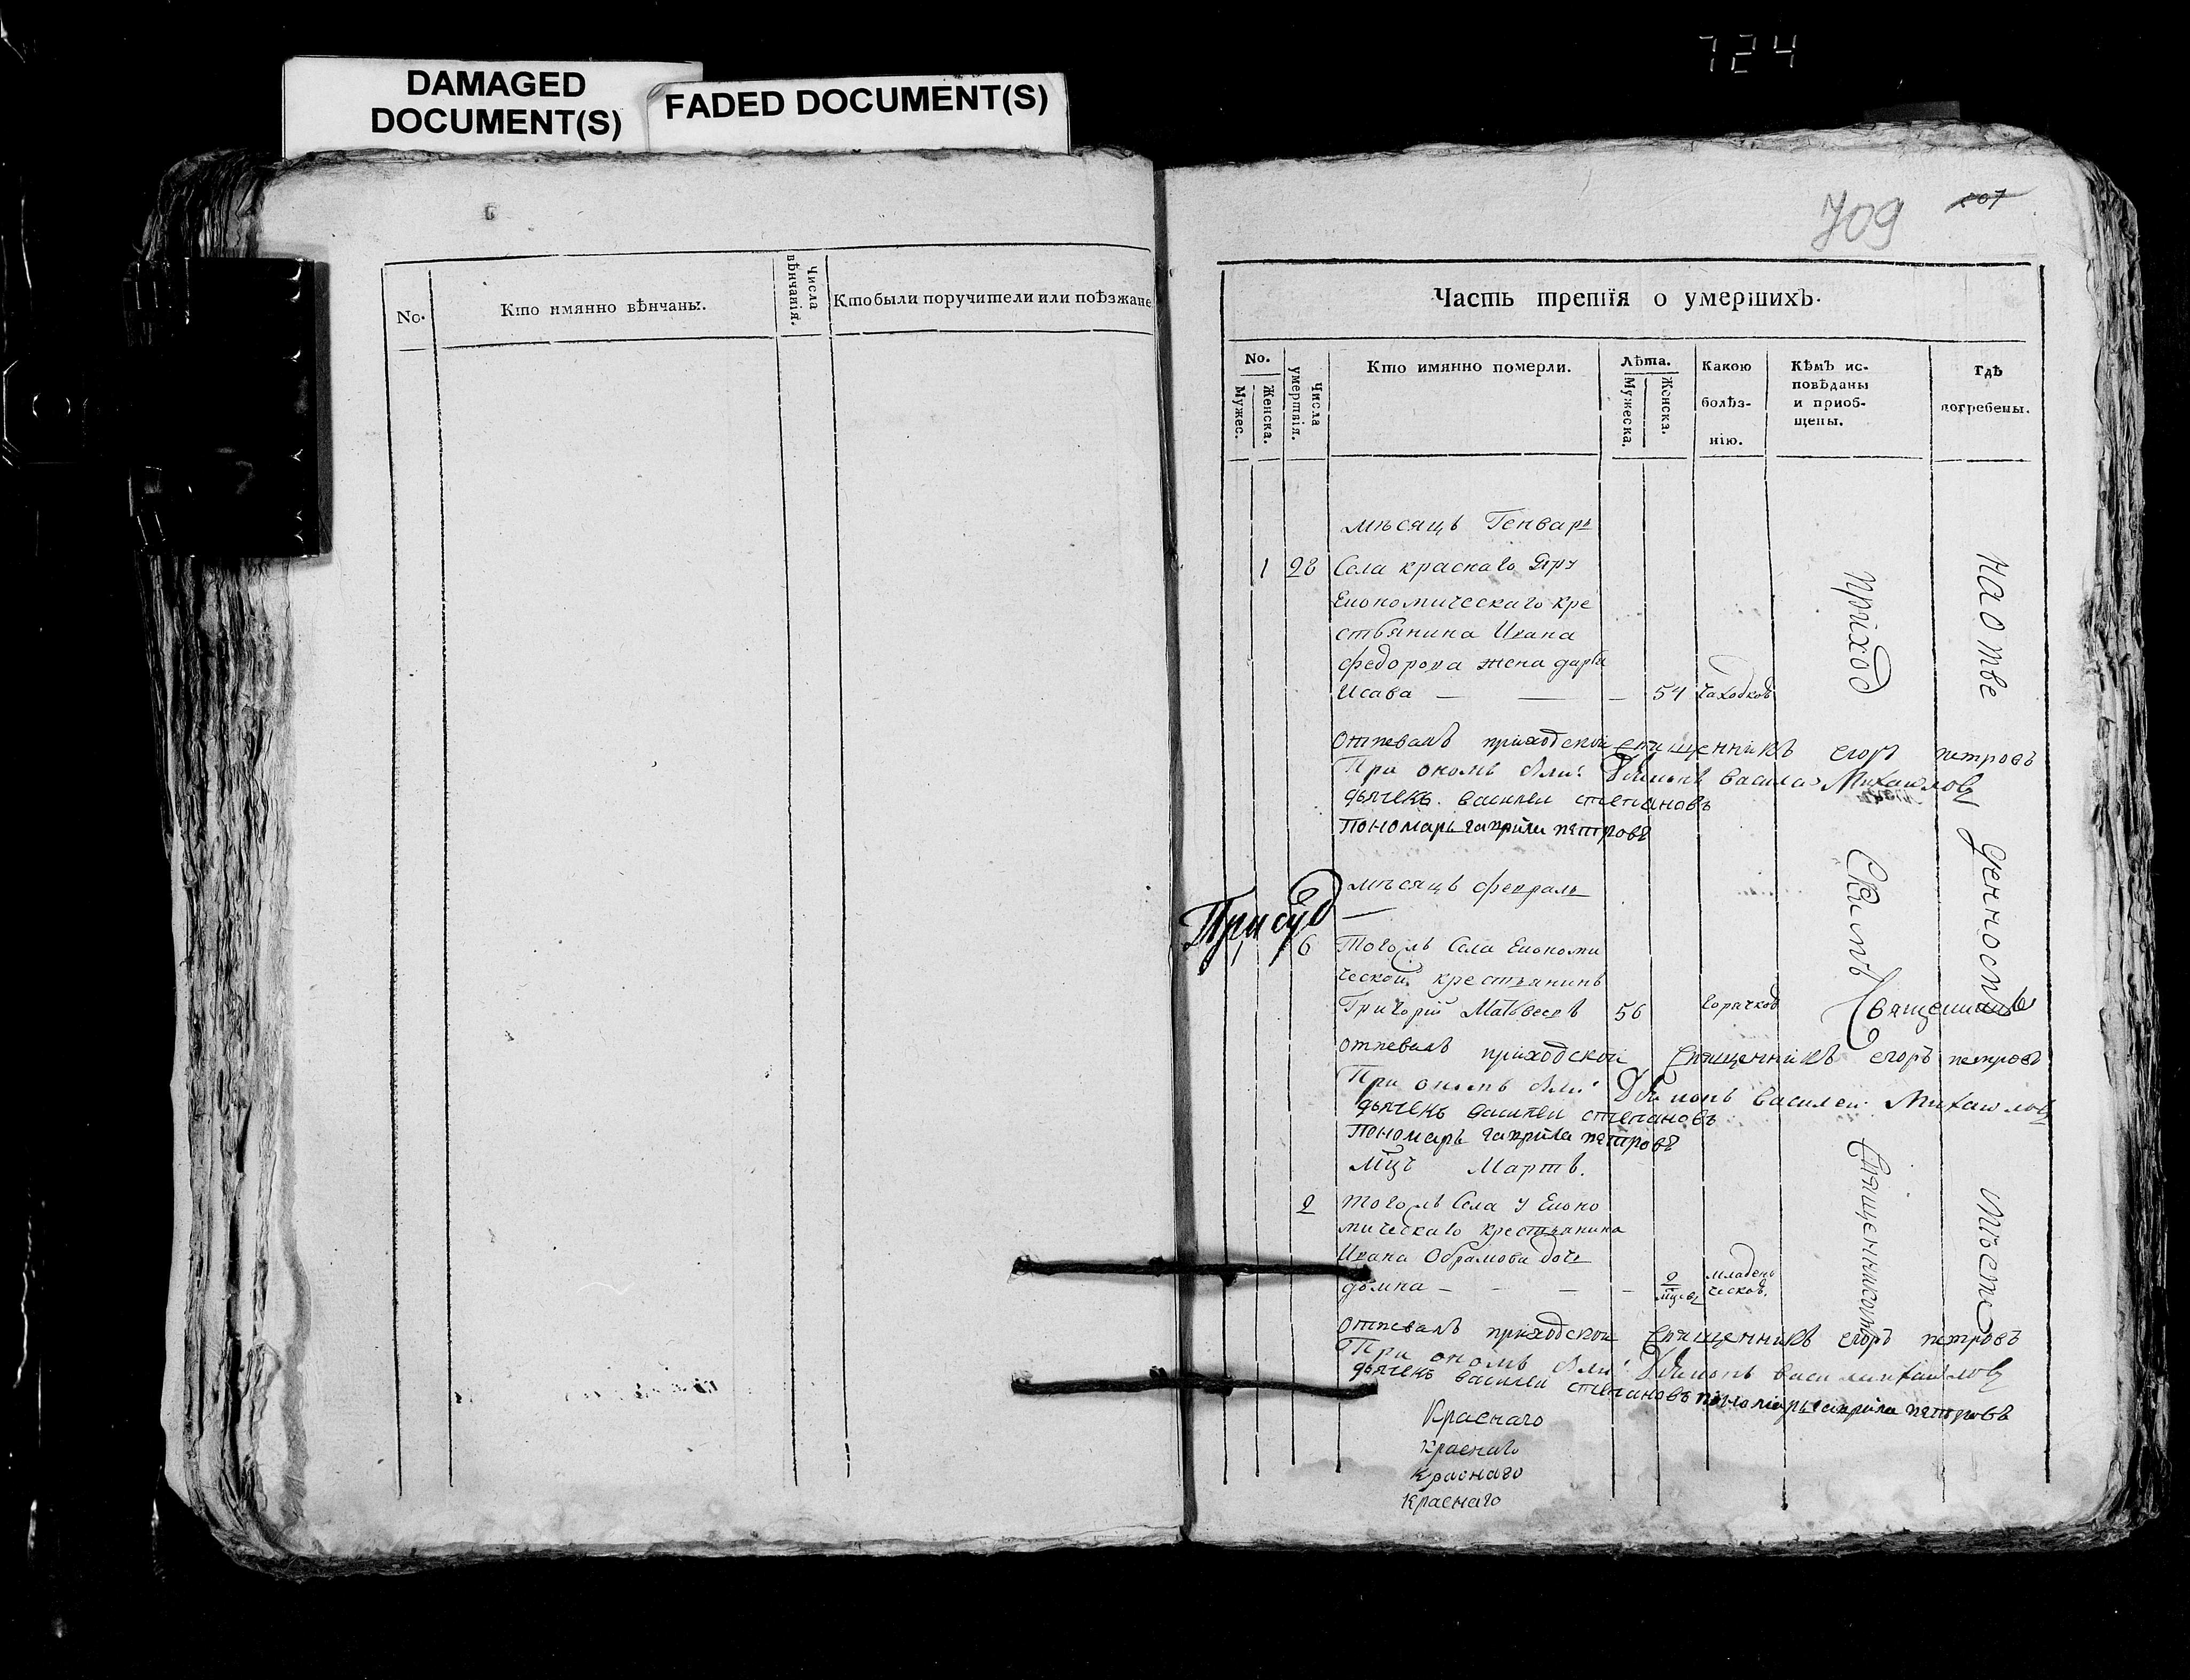 724
DAMAGED
DOCUMENT(S)
FADED DOCUMENT(S)
No.
Кто имянно вѣнчаны.
Числа
вѣнчанія.
Кто были поручители или поѣзжане
709
207
Часть третія о умершихъ.
No.
Мужес.
Женска.
Числа
умертвія.
Кто имянно померли.
Лѣта.
Мужеска.
Женска.
Какою
болѣз-
нію.
Кѣмъ ис-
повѣданы
и приоб-
щены.
Гдѣ
погребены.
мѣсяцъ Генварь
1 28 Села краснаго
Економическаго кре
стьянина Ивана
федорова жена дарья
Исава — — — 54 чахоткою
Отпевалъ приходской священникъ егоръ петровъ
При ономъ были Диаконъ василей Михаиловъ
дьячекъ василеи степановъ
Пономарь гаврила петровъ
мѣсяцъ февраль
Присуд
1 6 Тогожъ Села Економи
ческой крестьянинъ
Григорій Матвеевъ 56 горячкою
священникъ
отпевалъ приходской священникъ егоръ петровъ
При ономъ были Диаконъ василеи Михаиловъ
дьячекъ василеи степановъ
Пономарь гаврила петровъ
Мцъ Мартъ.
2 Тогожъ Села у Еконо
мическаго крестьянина
Ивана Обрамова дочь
домна — — — 2 мцовъ младен
ческою.
отпевалъ приходской священникъ егоръ петровъ
При ономъ были Диаконъ васили михаиловъ
дьячекъ василеи степановъ пономарь гаврила петровъ
Краснаго
Краснаго
Краснаго
Краснаго
приход
Скимъ
священникомъ
на отве
денномъ
месте